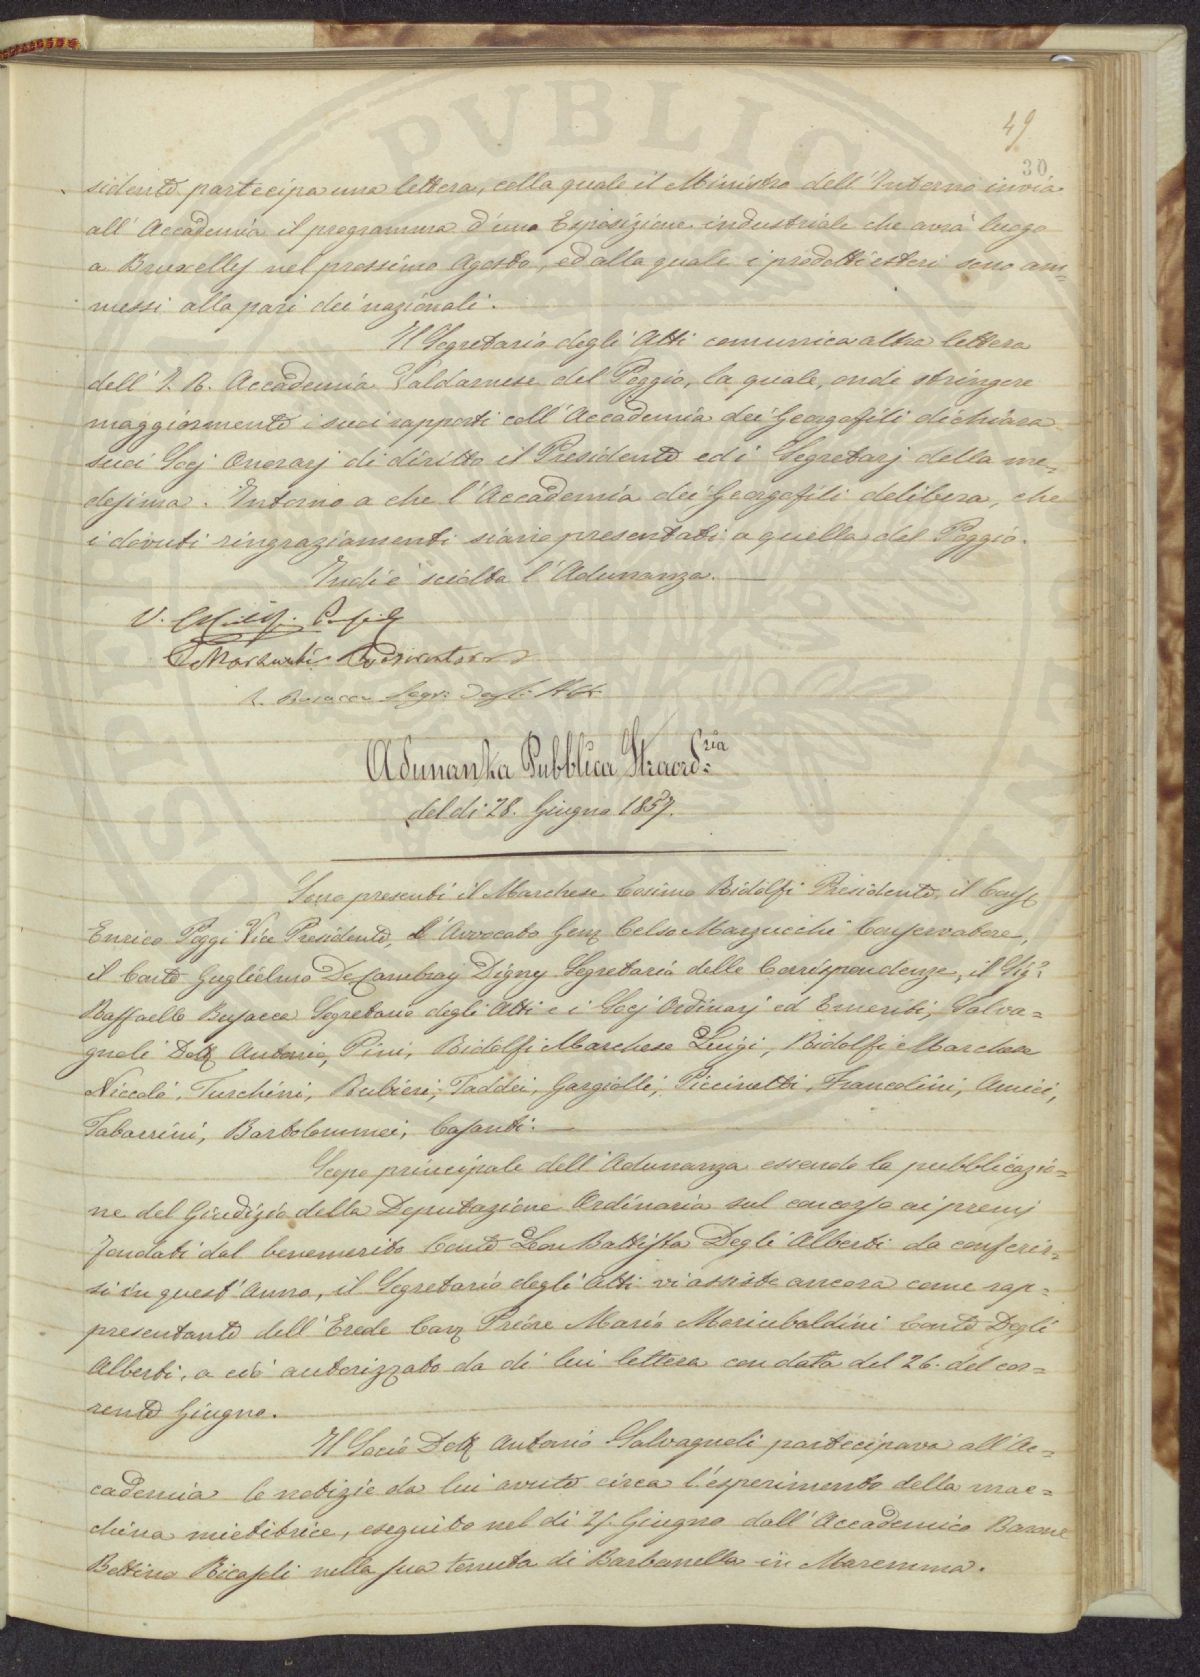 49
30
sidente partecipa una lettera, colla quale il Ministro dell'Interno invia
all'Accademia il programma d'una Esposizione industriale che avrà luogo
a Bruxelles nel prossimo Agosto, ed alla quale i prodotti esteri sono am=
messi alla pari dei nazionali.
Il Segretario degli Atti comunica altra lettera
dell'I. R. Accademia Valdarnese del Poggio, la quale, onde stringere
maggiormente i suoi rapporti coll'Accademia dei Georgofili dichiara
suoi Socj Onorarj di diritto il Presidente ed i Segretarj della me=
desima. Intorno a che l'Accademia dei Georgofili delibera, che
i dovuti ringraziamenti siano presentati a quella del Poggio.
Indi è sciolta l'Adunanza.
V.
Marzucchi Conservatore
R. Busacca Segr: degli Atti
Adunanza Pubblica Straord:ria
del di 28. Giugno 1857.
Sono presenti il Marchese Cosimo Ridolfi Presidente, il Cons
Enrico Poggi Vice Presidente, l'Avvocato Gen Celso Marzucchi Conservatore,
il Conte Guglielmo De Cambray Digny Segretario delle Corrispondenze, il Sig.r
Raffaello Busacca Segretario degli Atti e i Socj Ordinarj ed Emeriti, Salva=
gnoli Dott Antonio, Pini, Ridolfi Marchese Luigi, Ridolfi Marchese
Niccolò, Turchini, Rubieri, Taddei, Gargiolli, Piccinetti, Francolini, Amici,
Tabarrini, Bartolommei, Casanti.
Scopo principale dell'Adunanza essendo la pubblicazio=
ne del Giudizio della Deputazione Ordinaria sul concorso ai premj
fondati dal benemerito Conte Leon Battista Degli Alberti da conferir=
si in quest'Anno, il Segretario degli Atti vi assiste ancora come rap=
presentante dell'Erede Cav Priore Mario Moriubaldini Conte Degli
Alberti, a ciò autorizzato da di lui lettera con data del 26. del cor=
rente Giugno.
Il Socio Dott Antonio Salvagnoli partecipava all'Ac=
cademia le notizie da lui avute circa l'esperimento della mac=
china mietitrice, eseguito nel di Giugno dall'Accademico Barone
Bettino Ricasoli nella sua tenuta di Barbanella in Maremma.